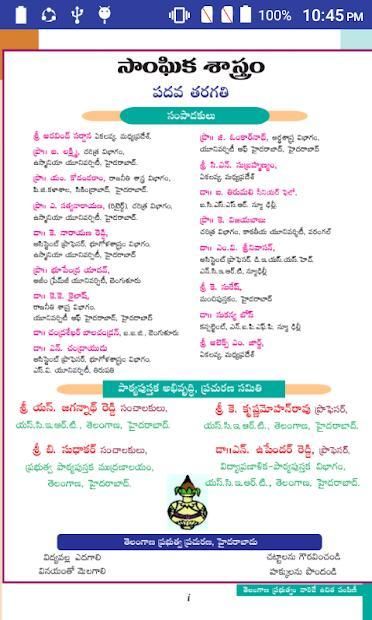 100% 10:45 PM
సాంఘిక శాస్త్రం
పదవ తరగతి
సంపాదకులు
శ్రీ అరవింద్ సర్దాన ఏకలవ్య, మధ్యప్రదేశ్.
ప్రొ॥ ఐ. లక్ష్మి, చరిత్ర విభాగం,
ఉస్మానియా యూనివర్సిటీ, హైదరాబాద్.
ప్రొ॥ యం. కోదండరాం, రాజనీతి శాస్త్ర విభాగం,
పి.జి.కళాశాల, సికింద్రాబాద్, హైదరాబాద్.
ప్రొ॥ ఎ. సత్యనారాయణ, (రిటైర్డ్), చరిత్ర విభాగం,
ఉస్మానియా యూనివర్సిటీ, హైదరాబాద్.
డా॥ కె. నారాయణ రెడ్డి,
అసిస్టెంట్ ప్రొఫెసర్, భూగోళశాస్త్రం విభాగం,
ఉస్మానియా యూనివర్సిటీ, హైదరాబాద్.
ప్రొ॥ భూపేంద్ర యాదవ్,
అజీం ప్రేమ్‌జీ యూనివర్సిటీ, బెంగుళూరు
డా॥ కె.కె. కైలాష్,
రాజనీతి శాస్త్ర విభాగం,
యూనివర్సిటీ ఆఫ్ హైదరాబాద్, హైదరాబాద్
డా॥ చంద్రశేఖర్ బాలచంద్రన్, ఐ.ఐ.జి., బెంగుళూరు
డా॥ ఎన్. చంద్రాయుడు
అసిస్టెంట్ ప్రొఫెసర్, భూగోళశాస్త్రం విభాగం,
ఎస్.వి. యూనివర్సిటీ, తిరుపతి
ప్రొ॥ జి. ఓంకార్‌నాథ్, అర్థశాస్త్ర విభాగం,
యూనివర్సిటీ ఆఫ్ హైదరాబాద్, హైదరాబాద్
శ్రీ సి.ఎన్. సుబ్రహ్మణ్యం,
ఏకలవ్య, మధ్యప్రదేశ్
డా॥ ఐ. తిరుమలి సీనియర్ ఫెలో,
ఐ.సి.ఎస్.ఎస్.ఆర్. న్యూ ఢిల్లీ
ప్రొ॥ కె. విజయబాబు
చరిత్ర విభాగం, కాకతీయ యూనివర్సిటీ, వరంగల్
డా॥ ఎం.వి. శ్రీనివాసన్,
అసిస్టెంట్ ప్రొఫెసర్, డి.ఇ.యస్.యస్.హెచ్.
ఎన్.సి.ఇ.ఆర్.టి., న్యూఢిల్లీ
శ్రీ కె. సురేష్,
మంచిపుస్తకం, హైదరాబాద్
డా॥ సుకన్య బోస్
కన్సల్టెంట్, ఎన్.ఐ.పి.ఎఫ్.పి. న్యూ ఢిల్లీ
శ్రీ అలెక్స్ ఎం. జార్జ్,
ఏకలవ్య, మధ్యప్రదేశ్
పాఠ్యపుస్తక అభివృద్ధి, ప్రచురణ సమితి
శ్రీ యస్. జగన్నాథ్ రెడ్డి సంచాలకులు,
యస్.సి.ఇ.ఆర్.టి., తెలంగాణ, హైదరాబాద్.
శ్రీ బి. సుధాకర్ సంచాలకులు,
ప్రభుత్వ పాఠ్యపుస్తక ముద్రణాలయం,
తెలంగాణ, హైదరాబాద్.
శ్రీ కె. కృష్ణమోహన్‌రావు ప్రొఫెసర్,
యస్.సి.ఇ.ఆర్.టి., తెలంగాణ, హైదరాబాద్.
డా॥ఎన్. ఉపేందర్ రెడ్డి, ప్రొఫెసర్,
విద్యాప్రణాళిక-పాఠ్యపుస్తక విభాగం,
యస్.సి.ఇ.ఆర్.టి., తెలంగాణ, హైదరాబాద్.
తెలంగాణ ప్రభుత్వ ప్రచురణ, హైదరాబాదు
విద్యవల్ల ఎదగాలి
వినయంతో మెలగాలి
చట్టాలను గౌరవించండి
హక్కులను పొందండి
తెలంగాణ ప్రభుత్వం వారిచే ఉచిత పంపిణీ
i